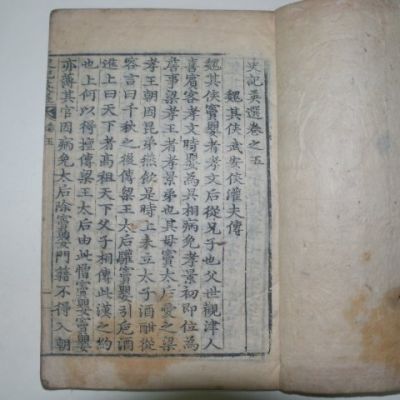 史記英選卷之五
魏其侯武安侯灌夫傳
魏其侯竇嬰者孝文后從兄子也父世觀津人
喜賓客孝文時嬰爲吳相病免孝景初即位爲
詹事梁孝王者孝景弟也其母竇太后愛之梁
孝王朝因昆弟燕飮是時上未立太子酒酣從
容言曰千秋之後傳梁王太后驩竇嬰引卮酒
進上曰天下者高祖天下父子相傳此漢之約
也上何以得擅傳梁王太后由此憎竇嬰竇嬰
亦薄其官因病免太后除竇嬰門籍不得入朝